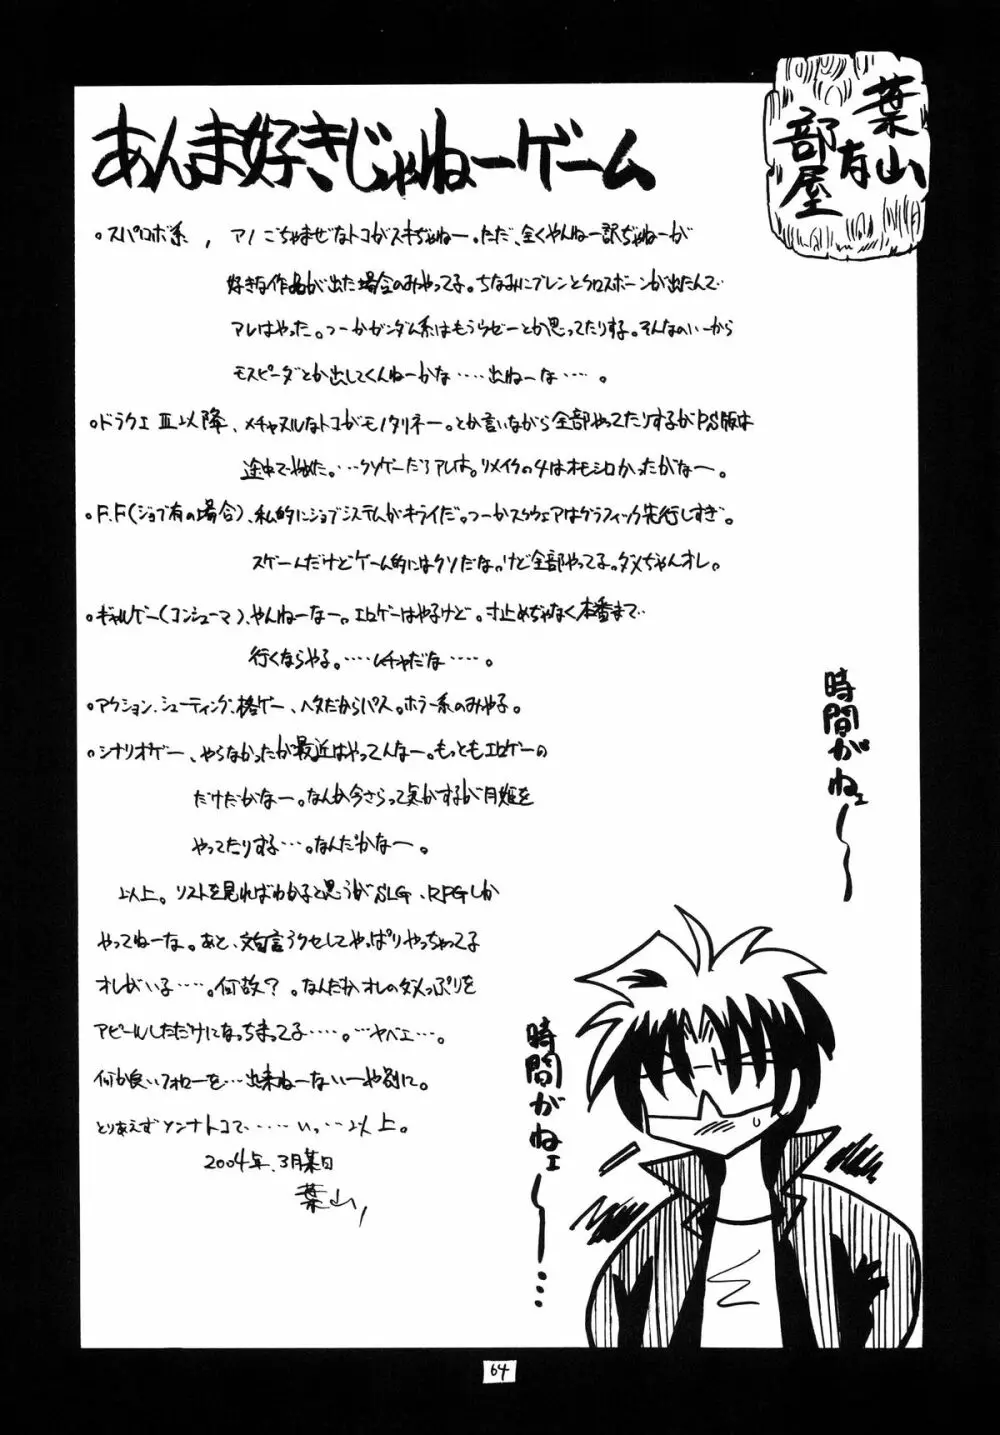 葉山
有
部屋
あんま好きじゃねーゲーム
・スパロボ系、アノごちゃまぜなトコがスキぢゃねー。ただ、全くやんねー訳ぢゃねーが
好きな作品が出た場合のみやってる。ちなみにブレンとクロスボーンが出たんで…
アレはやった。つーかガンダム系はもううぜーとか思ってたりする。そんなのいーから
モスピーダとか出してくんねーかな……出ねーな……。
・ドラクエⅢ以降、メチャヌルなトコがモノタリネー。とか言いながら全部やってたりするがPS版は
途中でやめた。…クソゲーだろアレは。リメイクの4はオモシロかったがなー。
・F.F(ジョブ有の場合)、私的にジョブシステムがキライだ。つーかスクウェアはグラフィック先行しすぎ。
スゲーんだけどゲーム的にはクソだな。けど全部やってる。ダメぢゃんオレ。
・ギャルゲー(コンシューマ)、やんねーなー。エロゲーはやるけど。寸止めぢゃなく本番まで…
行くならやる。……ムチャだな……。
・アクション、シューティング、格ゲー、ヘタだからパス。ホラー系のみやる。
・シナリオゲー、やらなかったが最近はやってんなー。もっともエロゲーの
だけだがなー。なんか今さらって気がするが月姫を
やってたりする…。なんだかなー。
以上。リストを見ればわかると思うがSLG、RPGしか
やってねーな。あと、文句言うクセしてやっぱりやっちゃってる
オレがいる…。何故?。なんだかオレのダメっぷりを
アピールしただけになっちまってる……。…ヤベェ…。
何か良いフォローを…出来ねーないーや別に。
とりあえずソンナトコで……いっ…以上。
2004年、3月某日
葉山
時間がねェ〜〜
時間がねェ〜〜…
64